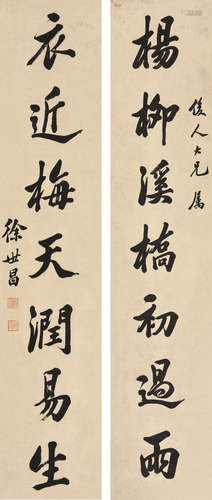 楊柳溪橋初過雨
俊人大兄屬
衣近梅天潤易生
徐世昌